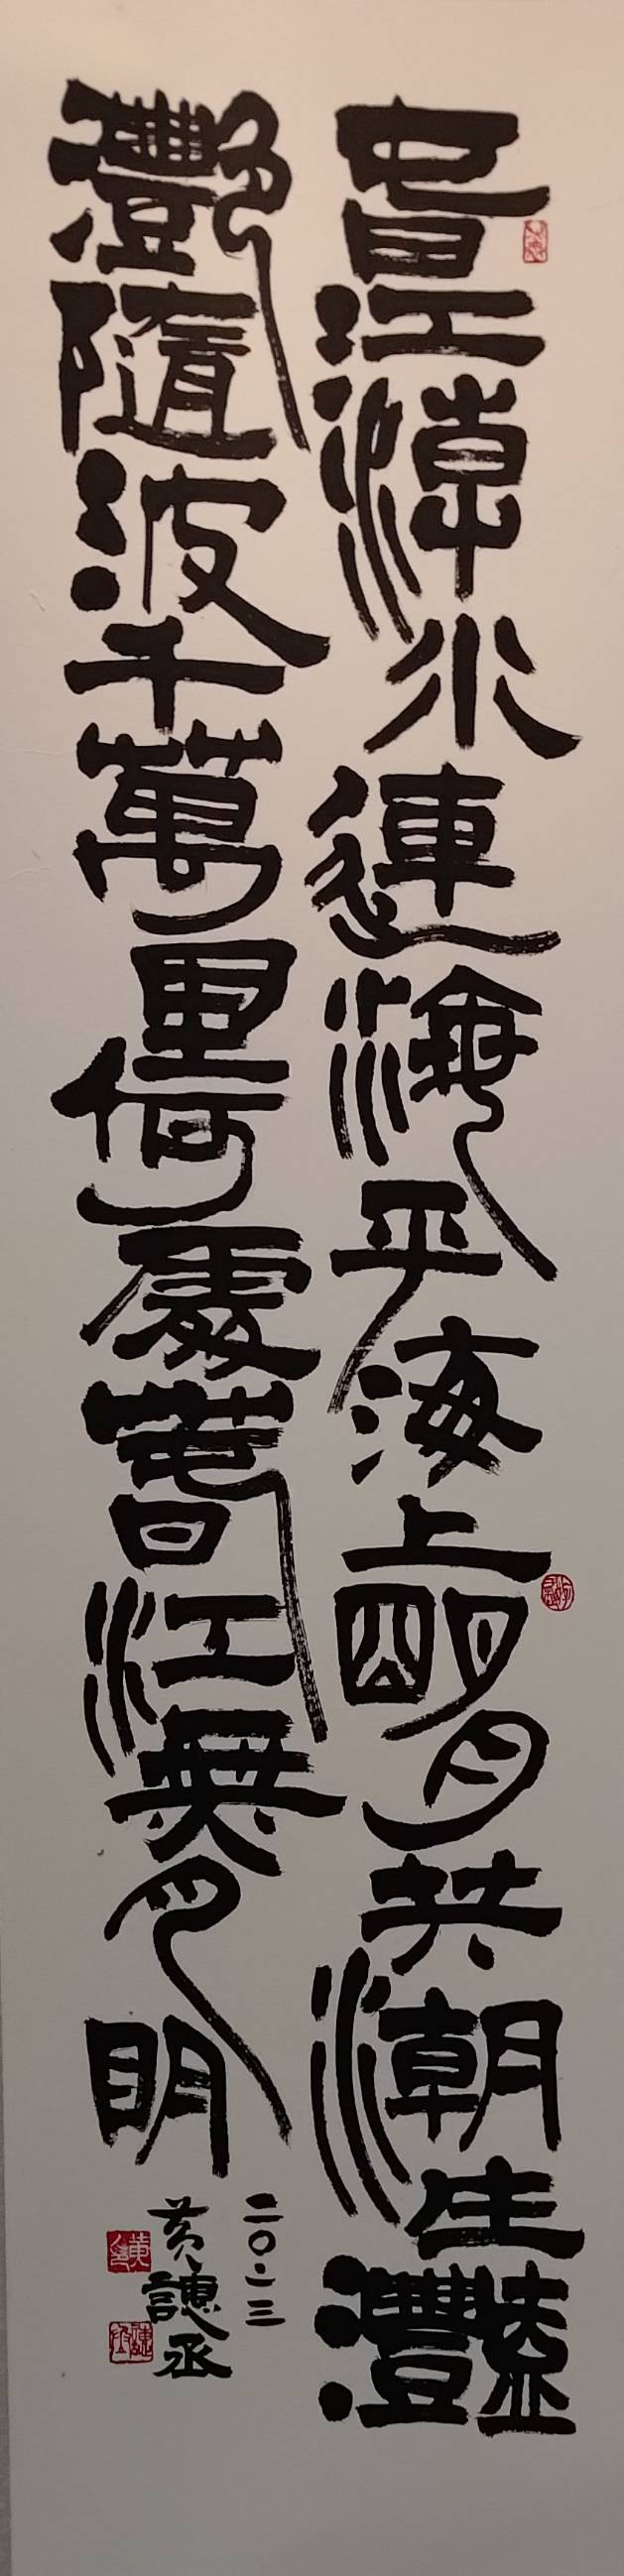 春江潮水連海平海上明月共潮生灩
灩隨波千萬里何處春江無月明
二〇二三
黃譓丞